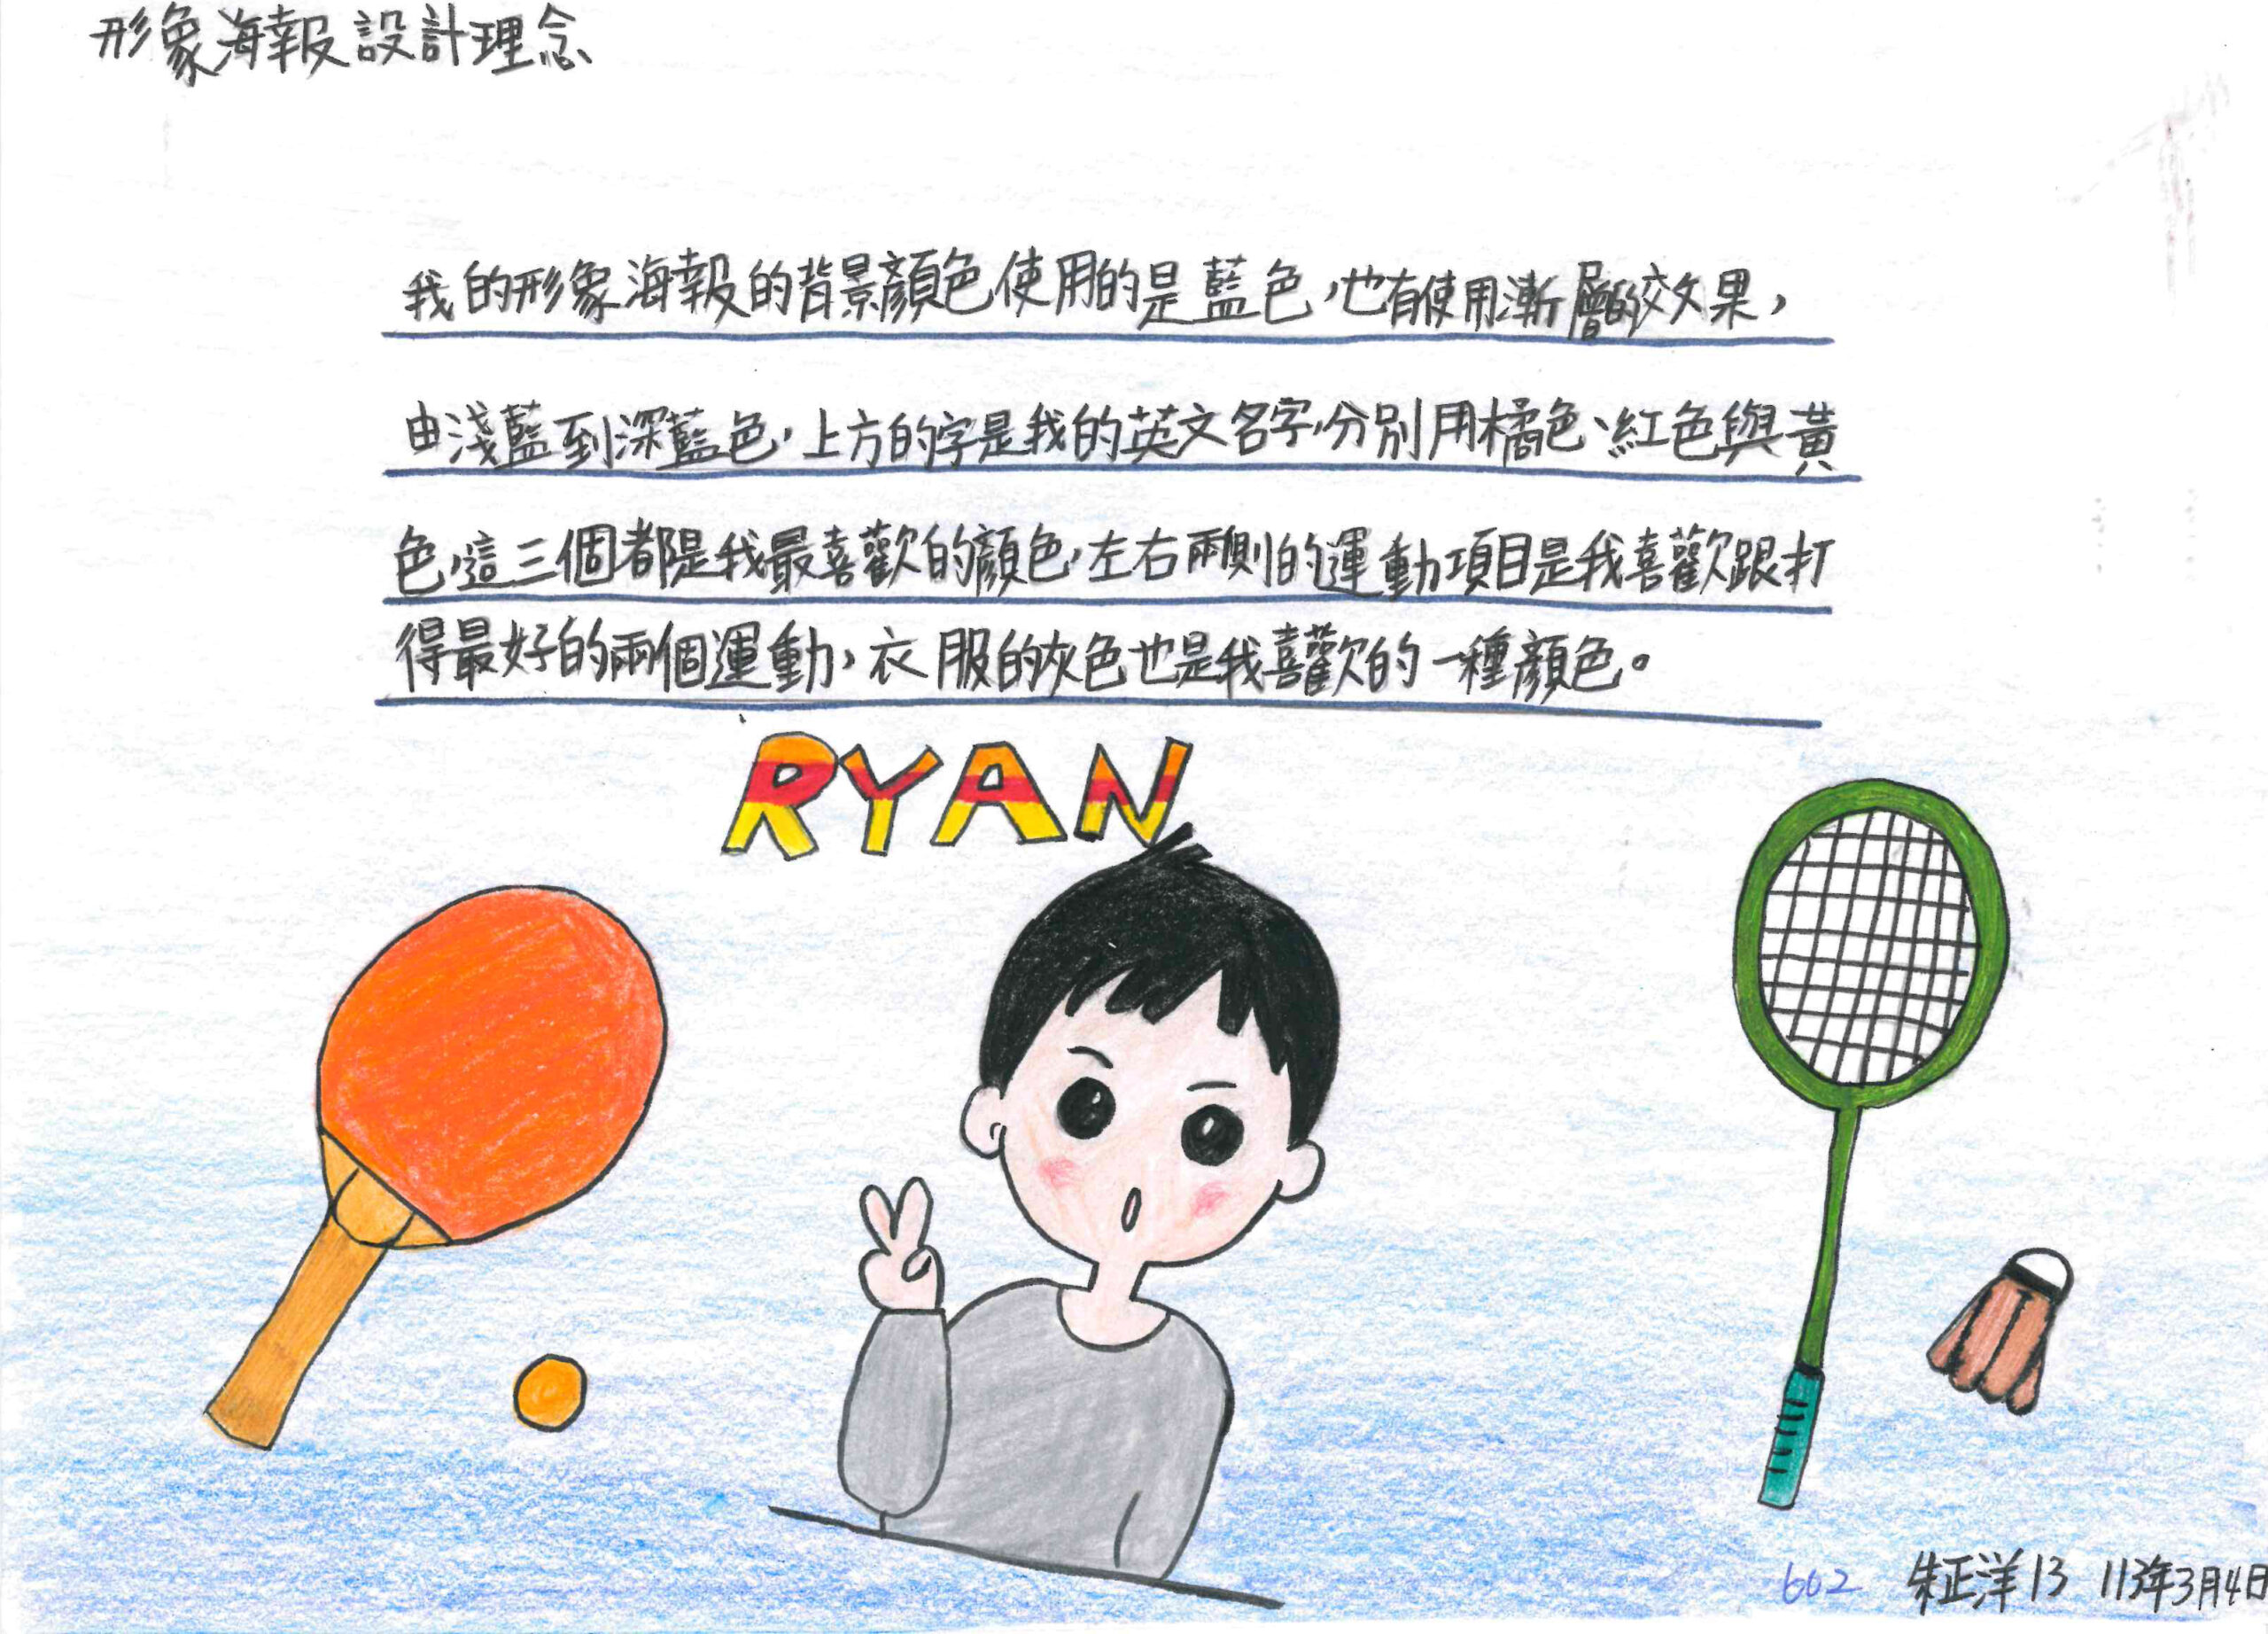 形象海報設計理念
我的形象海報的背景顏色使用的是藍色,也有使用漸層的效果,
由淺藍到深藍色,上方的字是我的英文名字,分別用橘色、紅色與黃
色,這三個都是我最喜歡的顏色,左右兩側的運動項目是我喜歡跟打
得最好的兩個運動,衣服的灰色也是我喜歡的一種顏色。
RYAN
602 朱正洋 13 113年3月4日